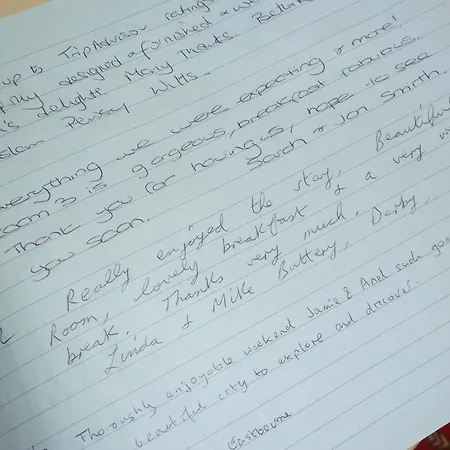 up to TripAdvisor ratings
designed & furnished &
delights Many Thanks.
Pewsey Wilts.
everything we were expecting & more!
Room 3 is gorgeous, breakfast fabulous.
Thank you for having us, hope to see
you soon. Sarah & Jon Smith.
Really enjoyed the stay, Beautiful
Room, lovely breakfast & a very
break. Thanks very much,
Linda & Mike Buttery, Derby,
Thoroughly enjoyable weekend Jamie & And such
beautiful city to explore and discover.
Eastbourne